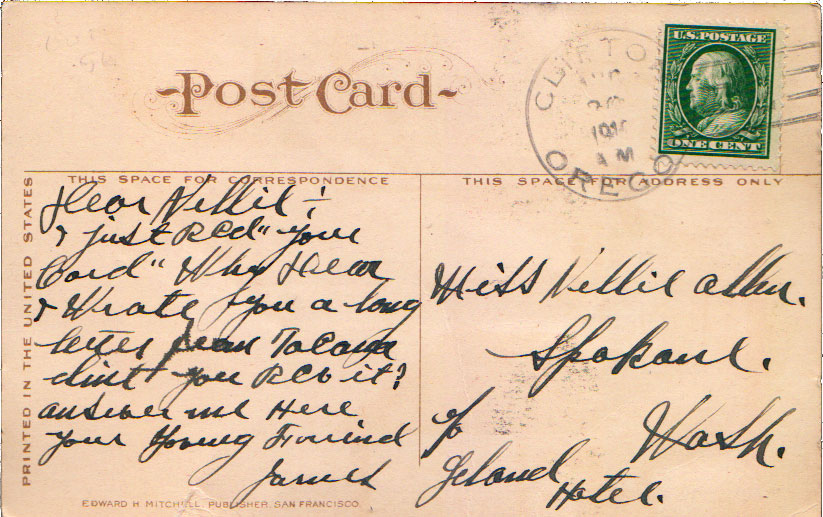 Post Card
CLIFTO
191
AM
OREGO
U.S. POSTAGE
ONE CENT
THIS SPACE FOR CORRESPONDENCE
THIS SPACE FOR ADDRESS ONLY
PRINTED IN THE UNITED STATES
Dear Nellie :
I just Rcd" your
Card" Why Dear
I Wrote you a long
letter from Tacoma
dint you Rec it?
answer me Here
your Young Friend
James
Miss Nellie allen.
Spokane.
Wash.
c/o
Hotel.
EDWARD H. MITCHELL, PUBLISHER, SAN FRANCISCO.